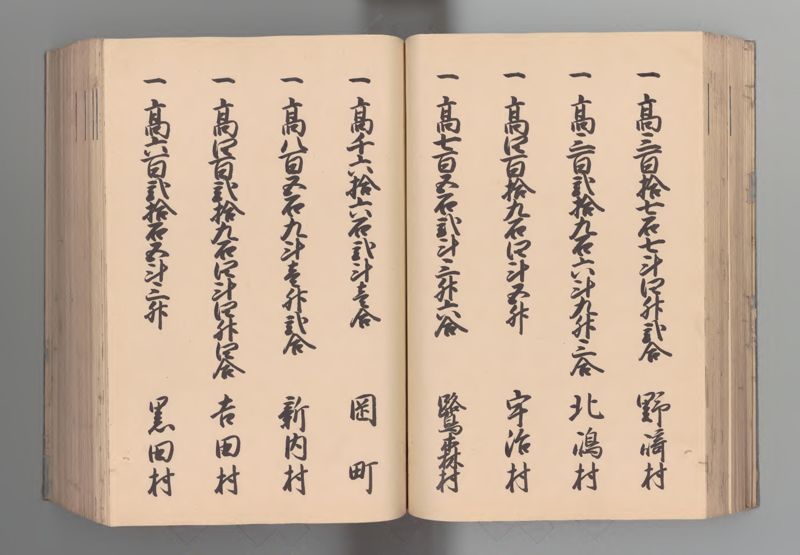 一 高三百拾七石七斗四升弐合 野崎村
一 高三百弐拾九石六斗九升三合 北嶋村
一 高四百拾九石四斗五升 宇治村
一 高七百五石弐斗三升六合 鷺森村
一 高千六拾六石弐斗壱合 岡町
一 高八百五石九斗壱升弐合 新内村
一 高四百弐拾九石四斗四升四合 吉田村
一 高六百弐拾石五斗三升 黒田村